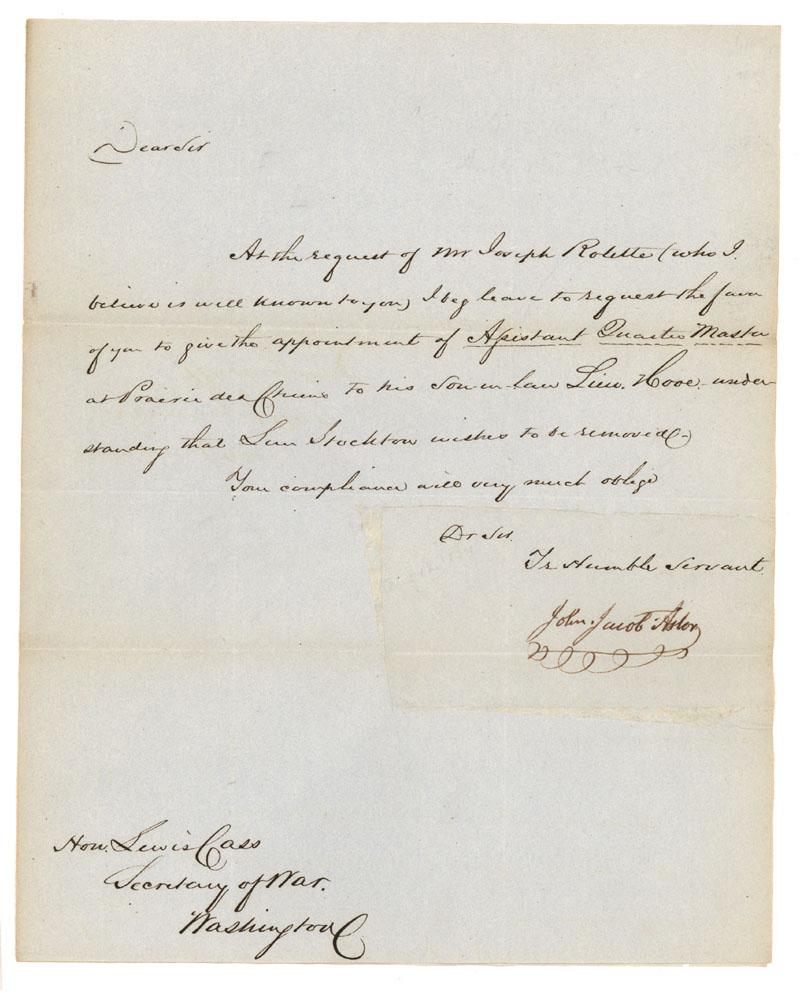 Dear Sir
At the request of Mr Joseph Rolette (who I
believe is well known to you) I beg leave to request the favor
of you to give the appointment of Assistant Quarter Master
at Prairie des Chiens to his Son-in-law Lieu. Hooe - under-
standing that Lieu Stockton wishes to be removed -
Your compliance will very much oblige
Dr Sir.
Yr Humble Servant
John Jacob Astor
Hon. Lewis Cass
Secretary of War.
Washington